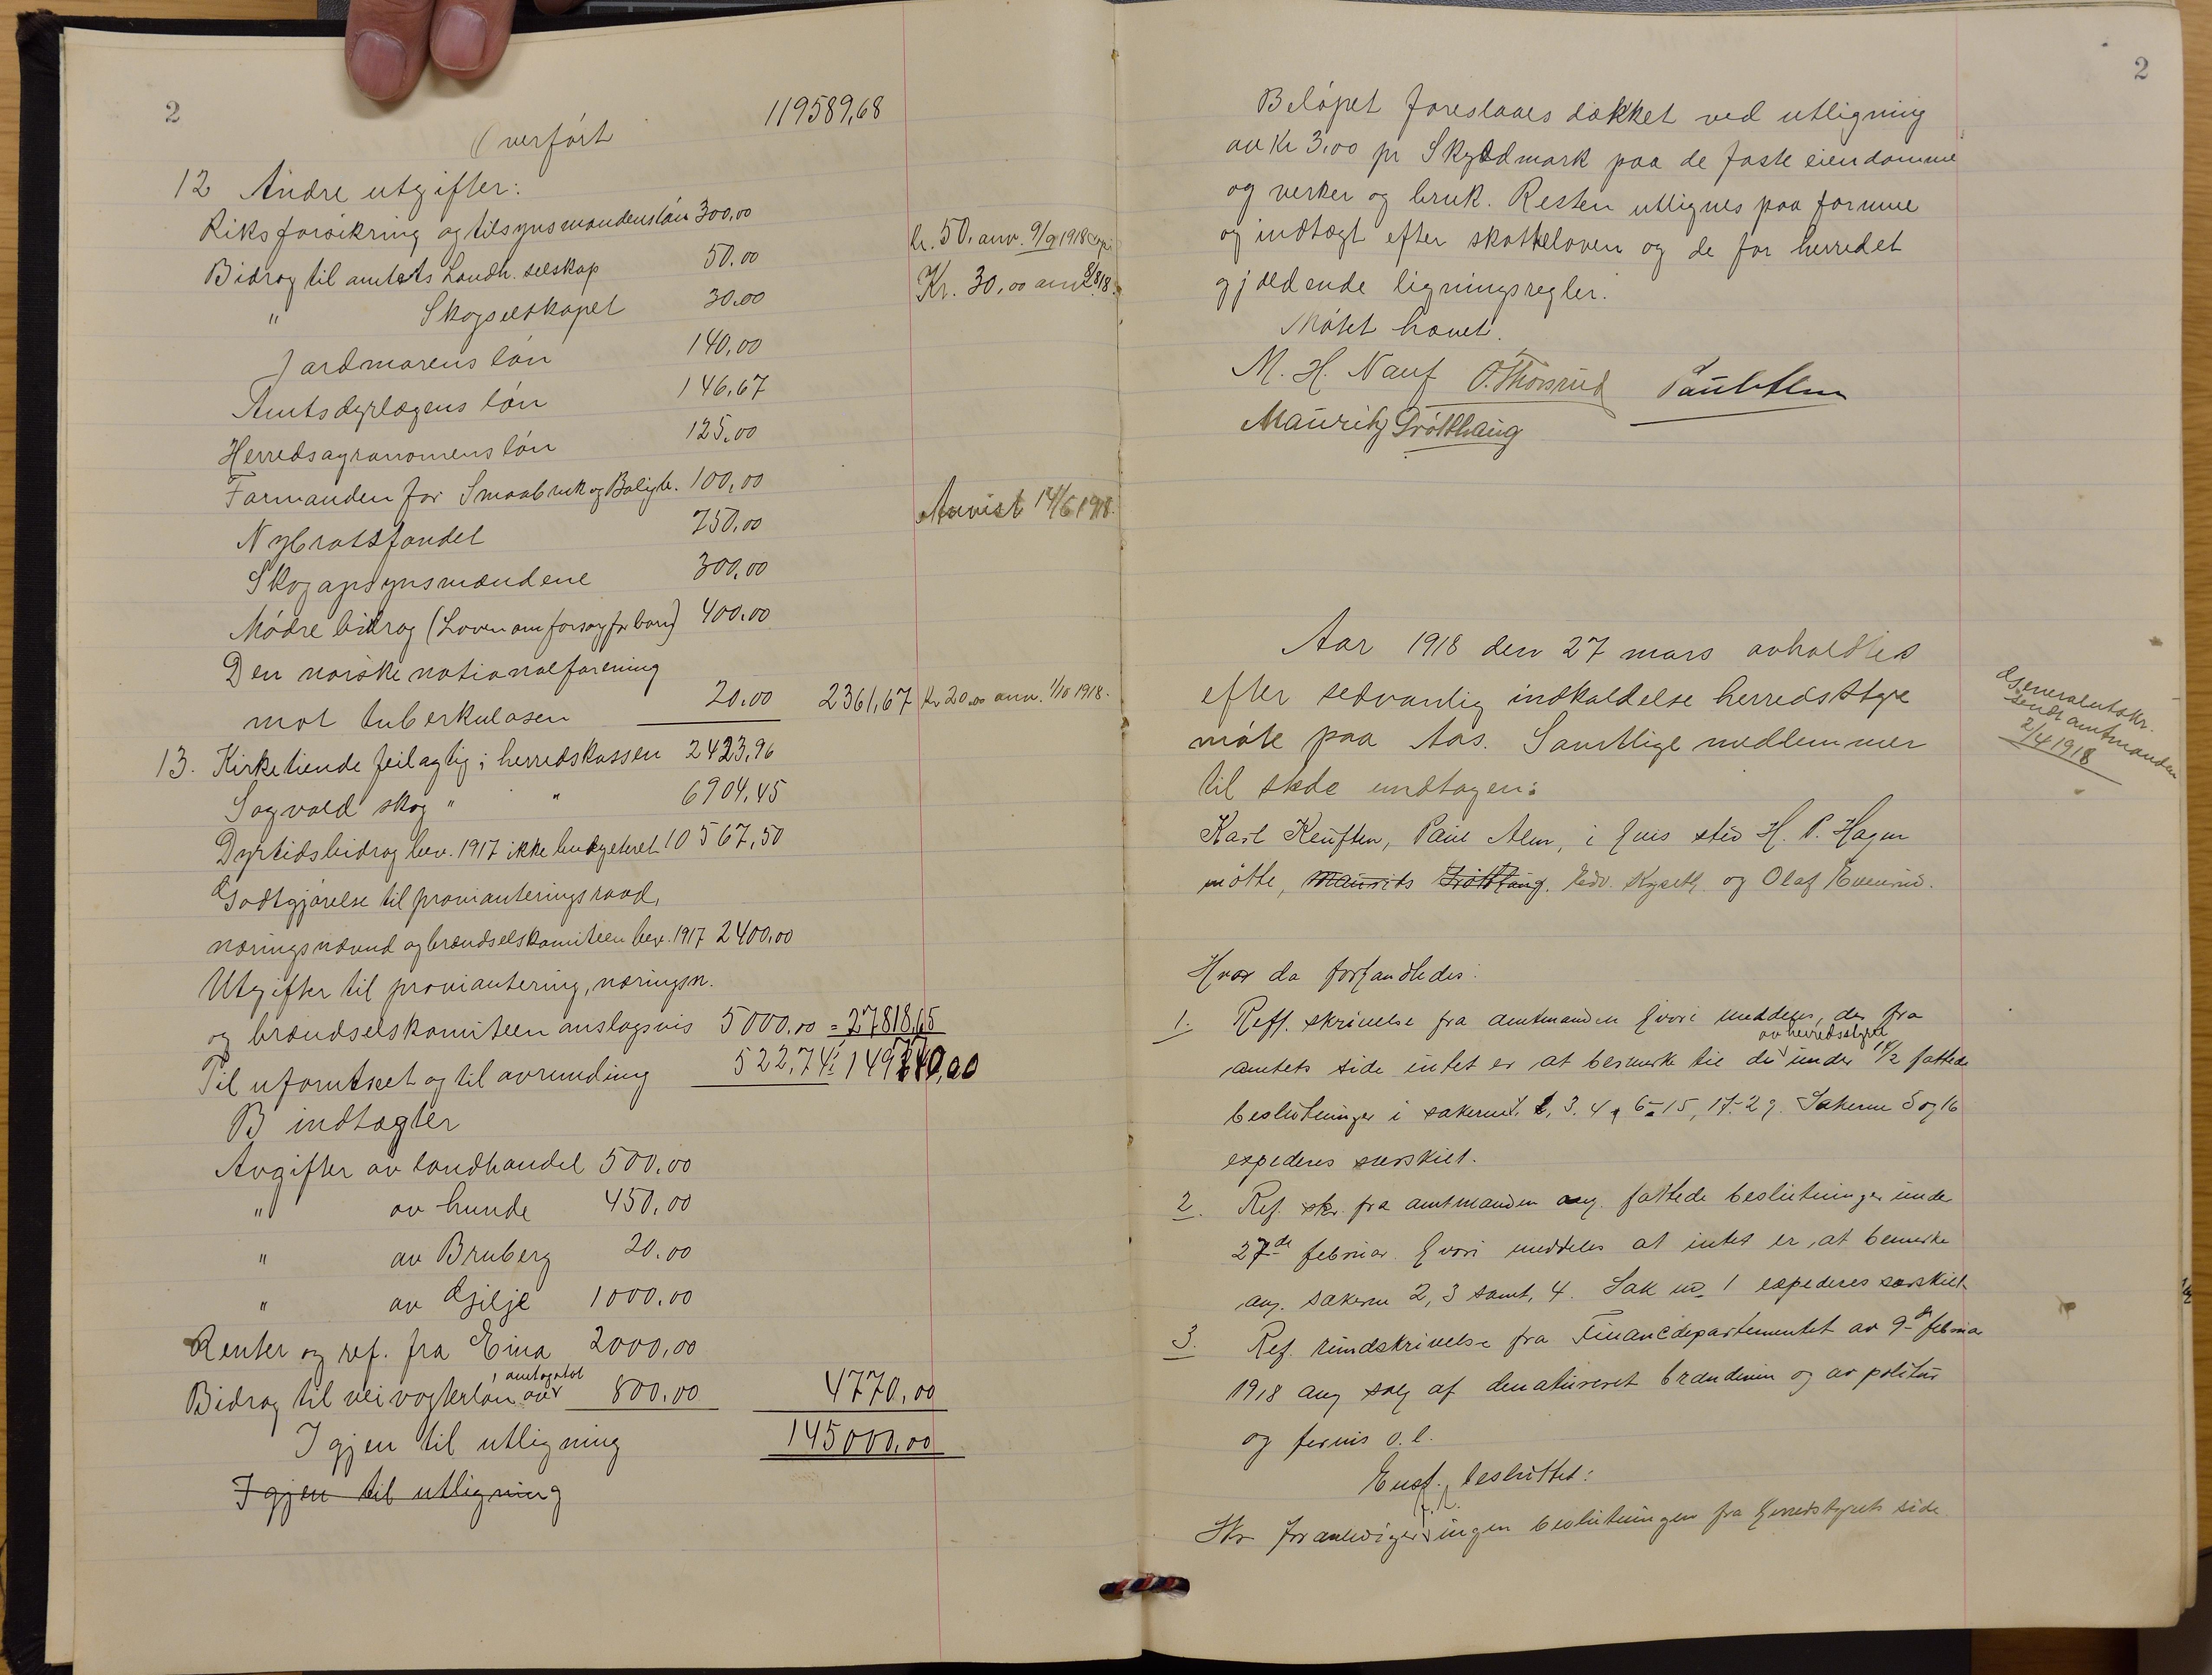 2
Overført 119589,68
12 Andre utgifter:
Riksforsikring og tilsynsmandens løn 300,00
Bidrag til amtets Landh. selskap 50.00 Kr. 50. anv. 9/9 1918
" Skogselskapet 30.00 Kr. 30,00 anv.
Jordmorens løn 140,00
Amtsdyrlægens løn 146,67
Herredsagronomens løn 125,00
Formanden for Smaabruk og Boligb. 100,00
Nybrotsfondet 750,00 Anvist 14/6 1918.
Skogopsynsmændene 300,00
Mødre bidrag (Loven om forsorg for barn) 400,00
Den norske nationalforening
mot tuberkulosen 20.00 2361,67 Kr 20,00 anv. 1/10 1918.
13. Kirketiende feilagtig i herredskassen 2423,96
Sagvold skog " " 6904,45
Dyrtidsbidrag bev. 1917 ikke budgeteret 10567,50
Godtgjørelse til provianteringsraad,
næringsnævnd og brændselskomiteen bev. 1917 2400,00
Utgifter til proviantering, næringsn.
og brændselskomiteen anslagsvis 5000,00 = 27818,65
Til uforutseet og til avrunding 522,74 149770,00
B indtægter
Avgifter av landhandel 500,00
" av hunde 450,00
" av Bruberg 20.00
" av Gjilje 1000,00
Renter og ref. fra Eina 2000,00
Bidrag til veivogterløn 800,00 4770,00
Igjen til utligning 145000,00
Igjen til utligning
2
Beløpet foreslaaes dækket ved utligning
av Kr 3,00 pr Skyldmark paa de faste eiendomme
og verker og bruk. Resten utlignes paa formue
og indtægt efter skatteloven og de for herredet
gjældende ligningsregler.
Møtet hævet.
M. H. Nauf O. Thorsrud Paul Alm
Mauritz Trøtthaug
Aar 1918 den 27 mars avholdtes
efter sedvanlig indkaldelse herredsstyre
møte paa Aas. Samtlige medlemmer
til stede undtagen:
Karl Keuften, Paul Alm, i hvis sted H. P. Hagen
møtte, Maurits Trøtthaug. Edv. Kyseth og Olaf Evenrud.
Generalutskr.
sendt amtmanden
2/4 1918
Hvor da forhandledes:
1. Reff. skrivelse fra amtmanden hvori meddeles, der fra
av herredsstyret
amtets side intet er at bemerke til de under 14/2 fattede
beslutninger i sakerne 1. 2, 3. 4, 6-15, 17-29. Sakerne 5 og 16
expederes særskilt.
2. Ref. skr. fra amtmanden ang. fattede beslutninger under
27de februar hvori meddeles at intet er at bemerke
ang. sakerne 2, 3 samt, 4. Sak no 1 expederes særskilt
3. Ref. rundskrivelse fra Financdepartementet av 9de februar
1918 ang salg af denatureret brændevin og av politur
og fernis o. l.
Enst. besluttet:
f. t.
Skr foranlediger ingen beslutningen fra herredstyrets side